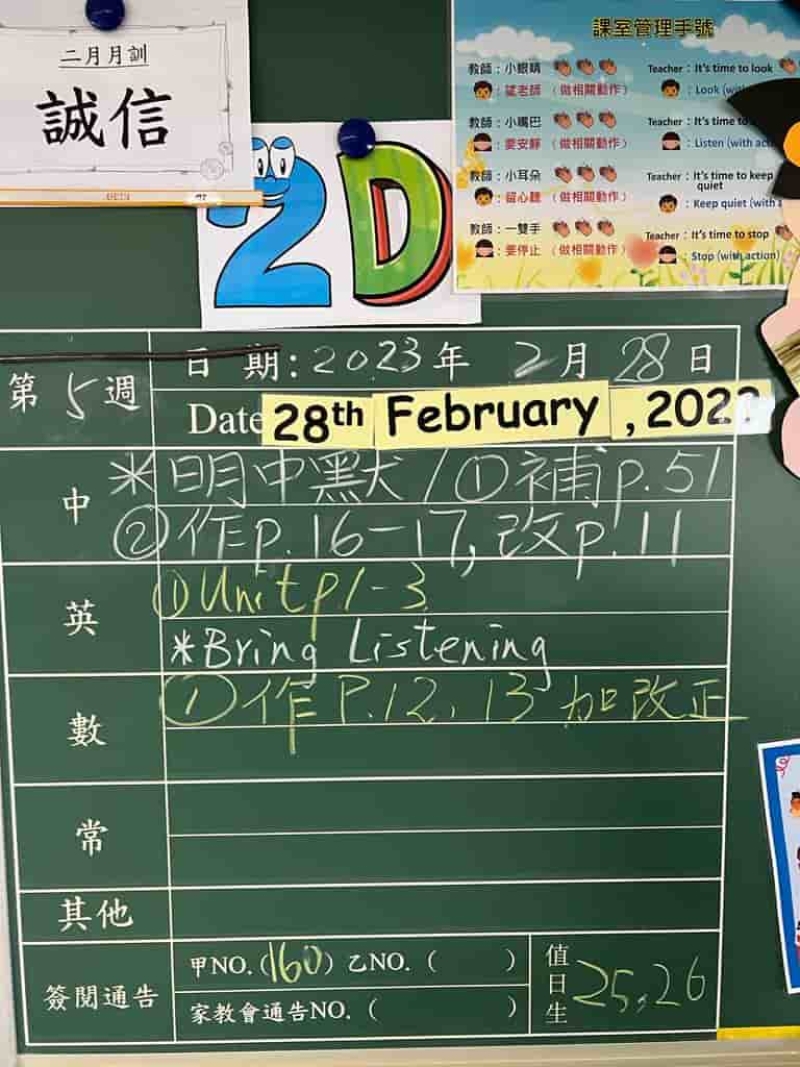 二月月訓
誠信
2D
課室管理手號
教師：小眼睛 Teacher : It's time to look
：望老師 （做相關動作） : Look (with
教師：小嘴巴 Teacher : It's time to
：要安靜 （做相關動作） : Listen (with act
教師：小耳朵 Teacher : It's time to keep quiet
：留心聽 （做相關動作） : Keep quiet (with a
教師：一雙手 Teacher : It's time to stop
：要停止 （做相關動作） : Stop (with action)
第5週
日 期：2023年 2月 28日
Date 28th February , 202
中 *明中默/①補p.51
②作p.16-17,改p.11
英 ①Unit p1-3
*Bring Listening
數 ①作P.12, 13 加改正
常
其他
簽閱通告 甲NO.(160) 乙NO. ( )
家教會通告NO. ( )
值日生 25,26